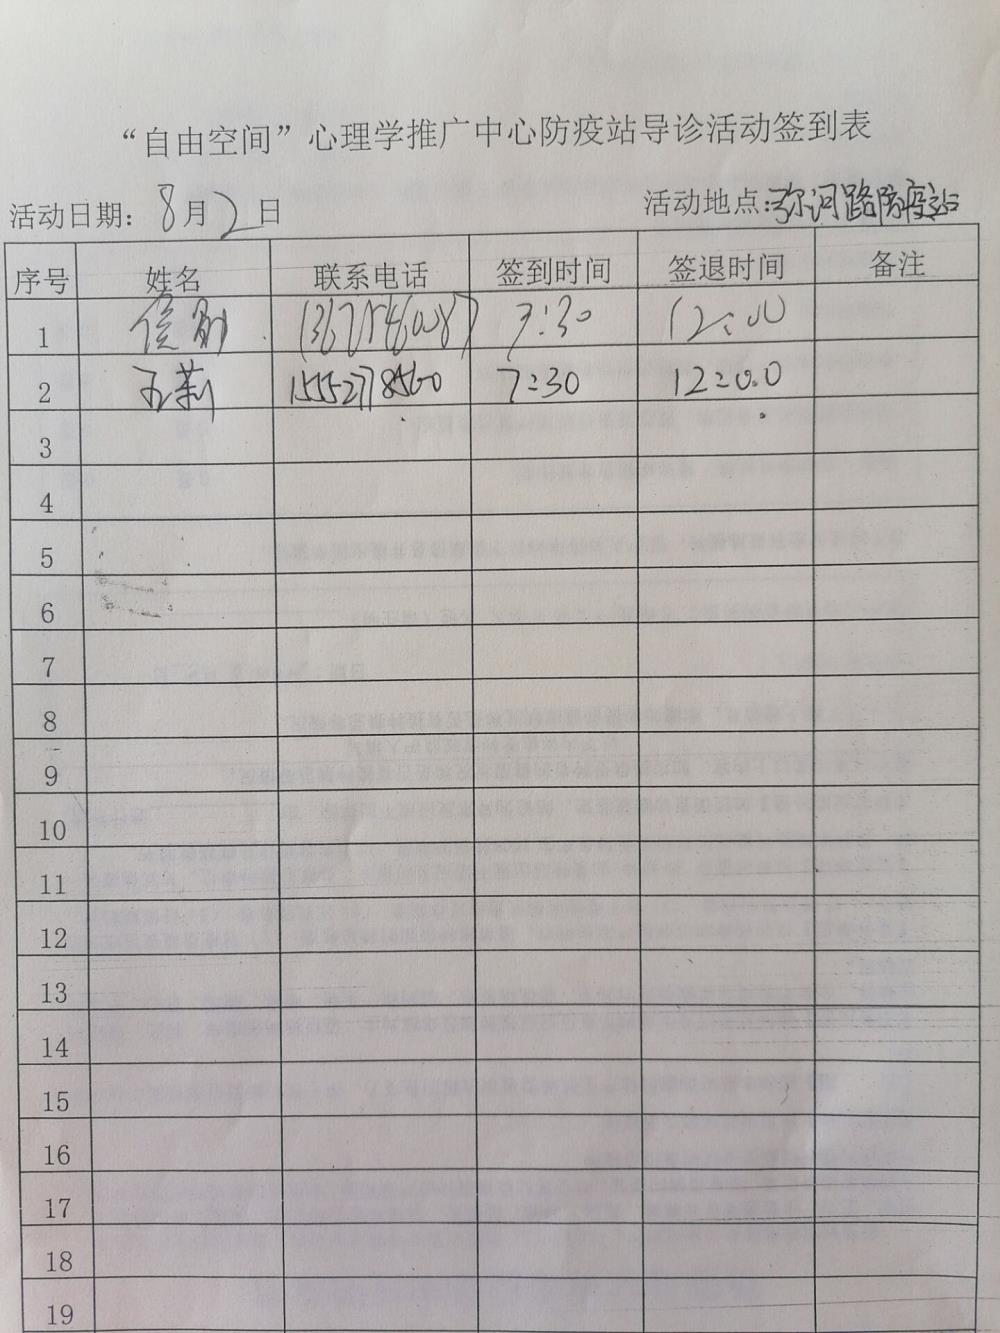 “自由空间”心理学推广中心防疫站导诊活动签到表
活动日期：8月2日 活动地点：弥河路防疫站
序号 姓名 联系电话 签到时间 签退时间 备注
1 7:30 12:00
2 王莉 15552778560 7:30 12:00
3
4
5
6
7
8
9
10
11
12
13
14
15
16
17
18
19